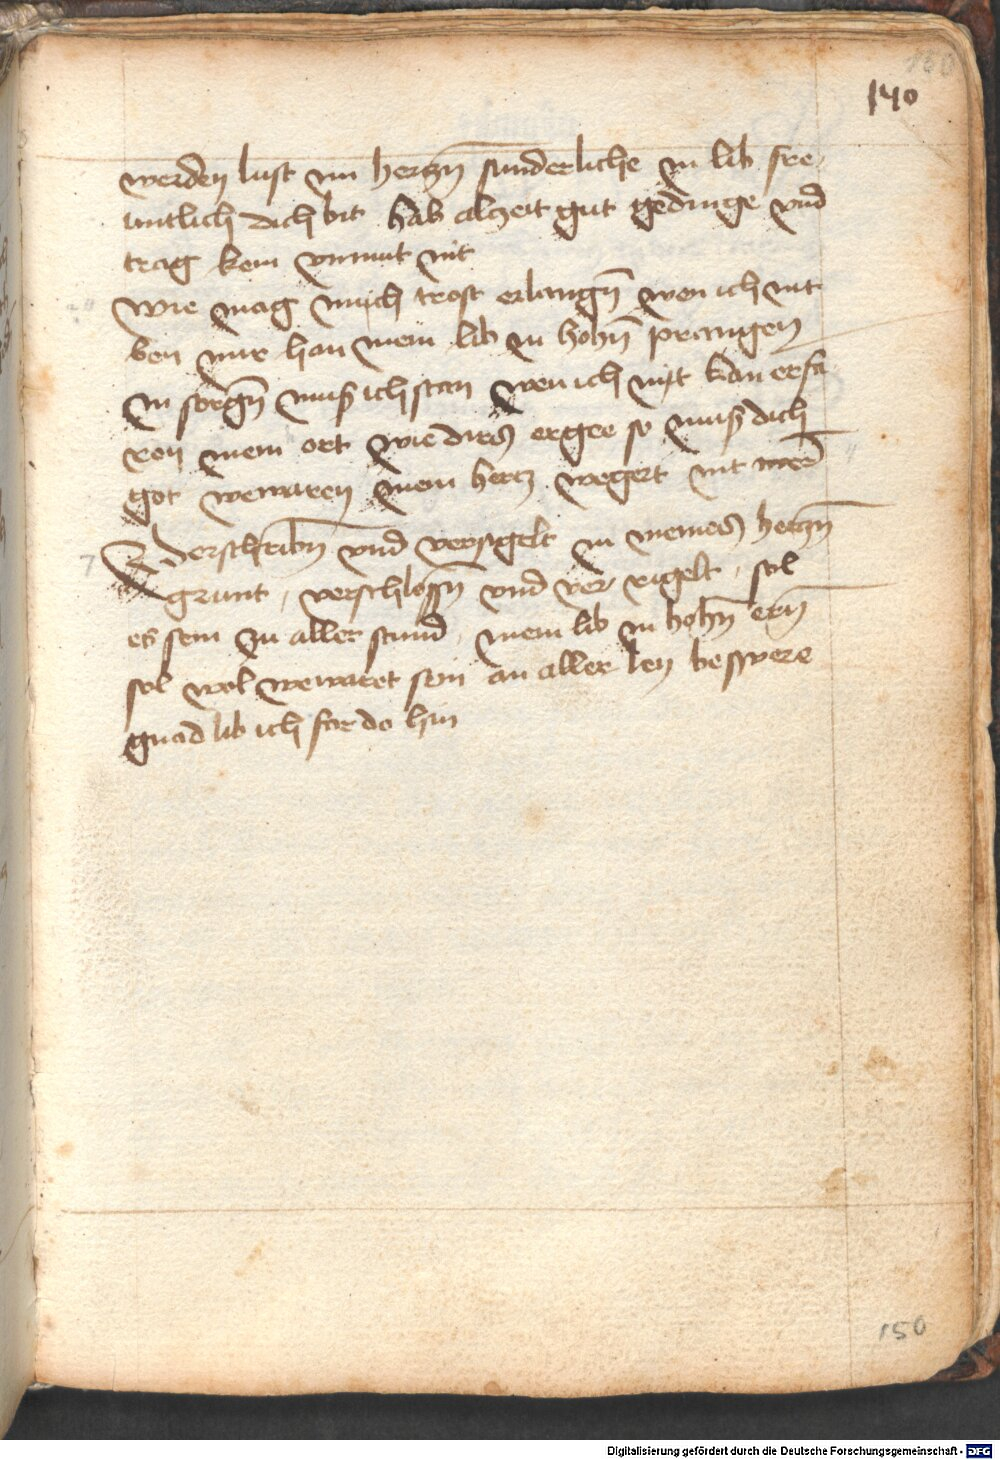 150
140
werden lust im herczñ sunderliche in lib fre,
untlich dich bit hab alczeit gut gedinge vnd
trag kein vnmut nit
Wie mag mich trost erlangñ wen ich nit
ben mir han mein lib in hohñ prangen
in sorgñ muß ich stan wen ich nijt kan erfa
ren mein ort wie dirs ergee so muß dich
got wewaren mein hertz wegert nit mer
7 Verschribñ vnd versigelt in meines herczñ
grunt, verschlossñ vnd ver rigelt, sol
es sein zu aller stund, mein lib in hohñ erñ
sol wol wewaret sein an aller ley beswere
gnad lib ich far do hin
150
Digitalisierung gefördert durch die Deutsche Forschungsgemeinschaft - DFG